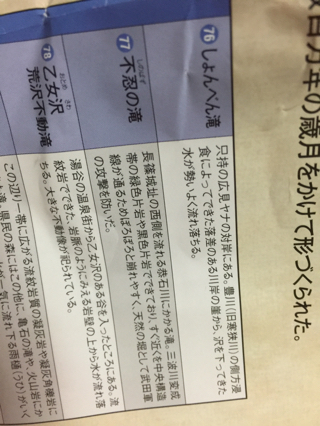 百万年の歳月をかけて形づくられた。
76 しょんべん滝
只持の広見ヤナの対岸にある。豊川(旧寒狭川)の側方浸
食によってできた落差のある川岸の崖から、沢を下ってきた
水が勢いよく流れ落ちる。
しのばず
77 不忍の滝
長篠城址の西側を流れる忝石川にかかる滝。三波川変成
帯の緑色片岩や黒色片岩でできており、すぐ近くを中央構造
線が通るためぼろぼろと崩れやすく、天然の堀として武田軍
の攻撃を防いだ。
おとめ さわ
78 乙女沢
荒沢不動滝
湯谷の温泉街から乙女沢のある谷を入ったところにある。流
紋岩でできた、岩脈のようにみえる岩壁の上から水が流れ落
ちる。大きな不動像が祀られている。
この辺り一帯に広がる流紋岩質の凝灰岩や凝灰角礫岩に
県民の森にはこの他に、亀石の滝や、火山岩にか
が一気に流れ下る雨樋(うひ)がいく